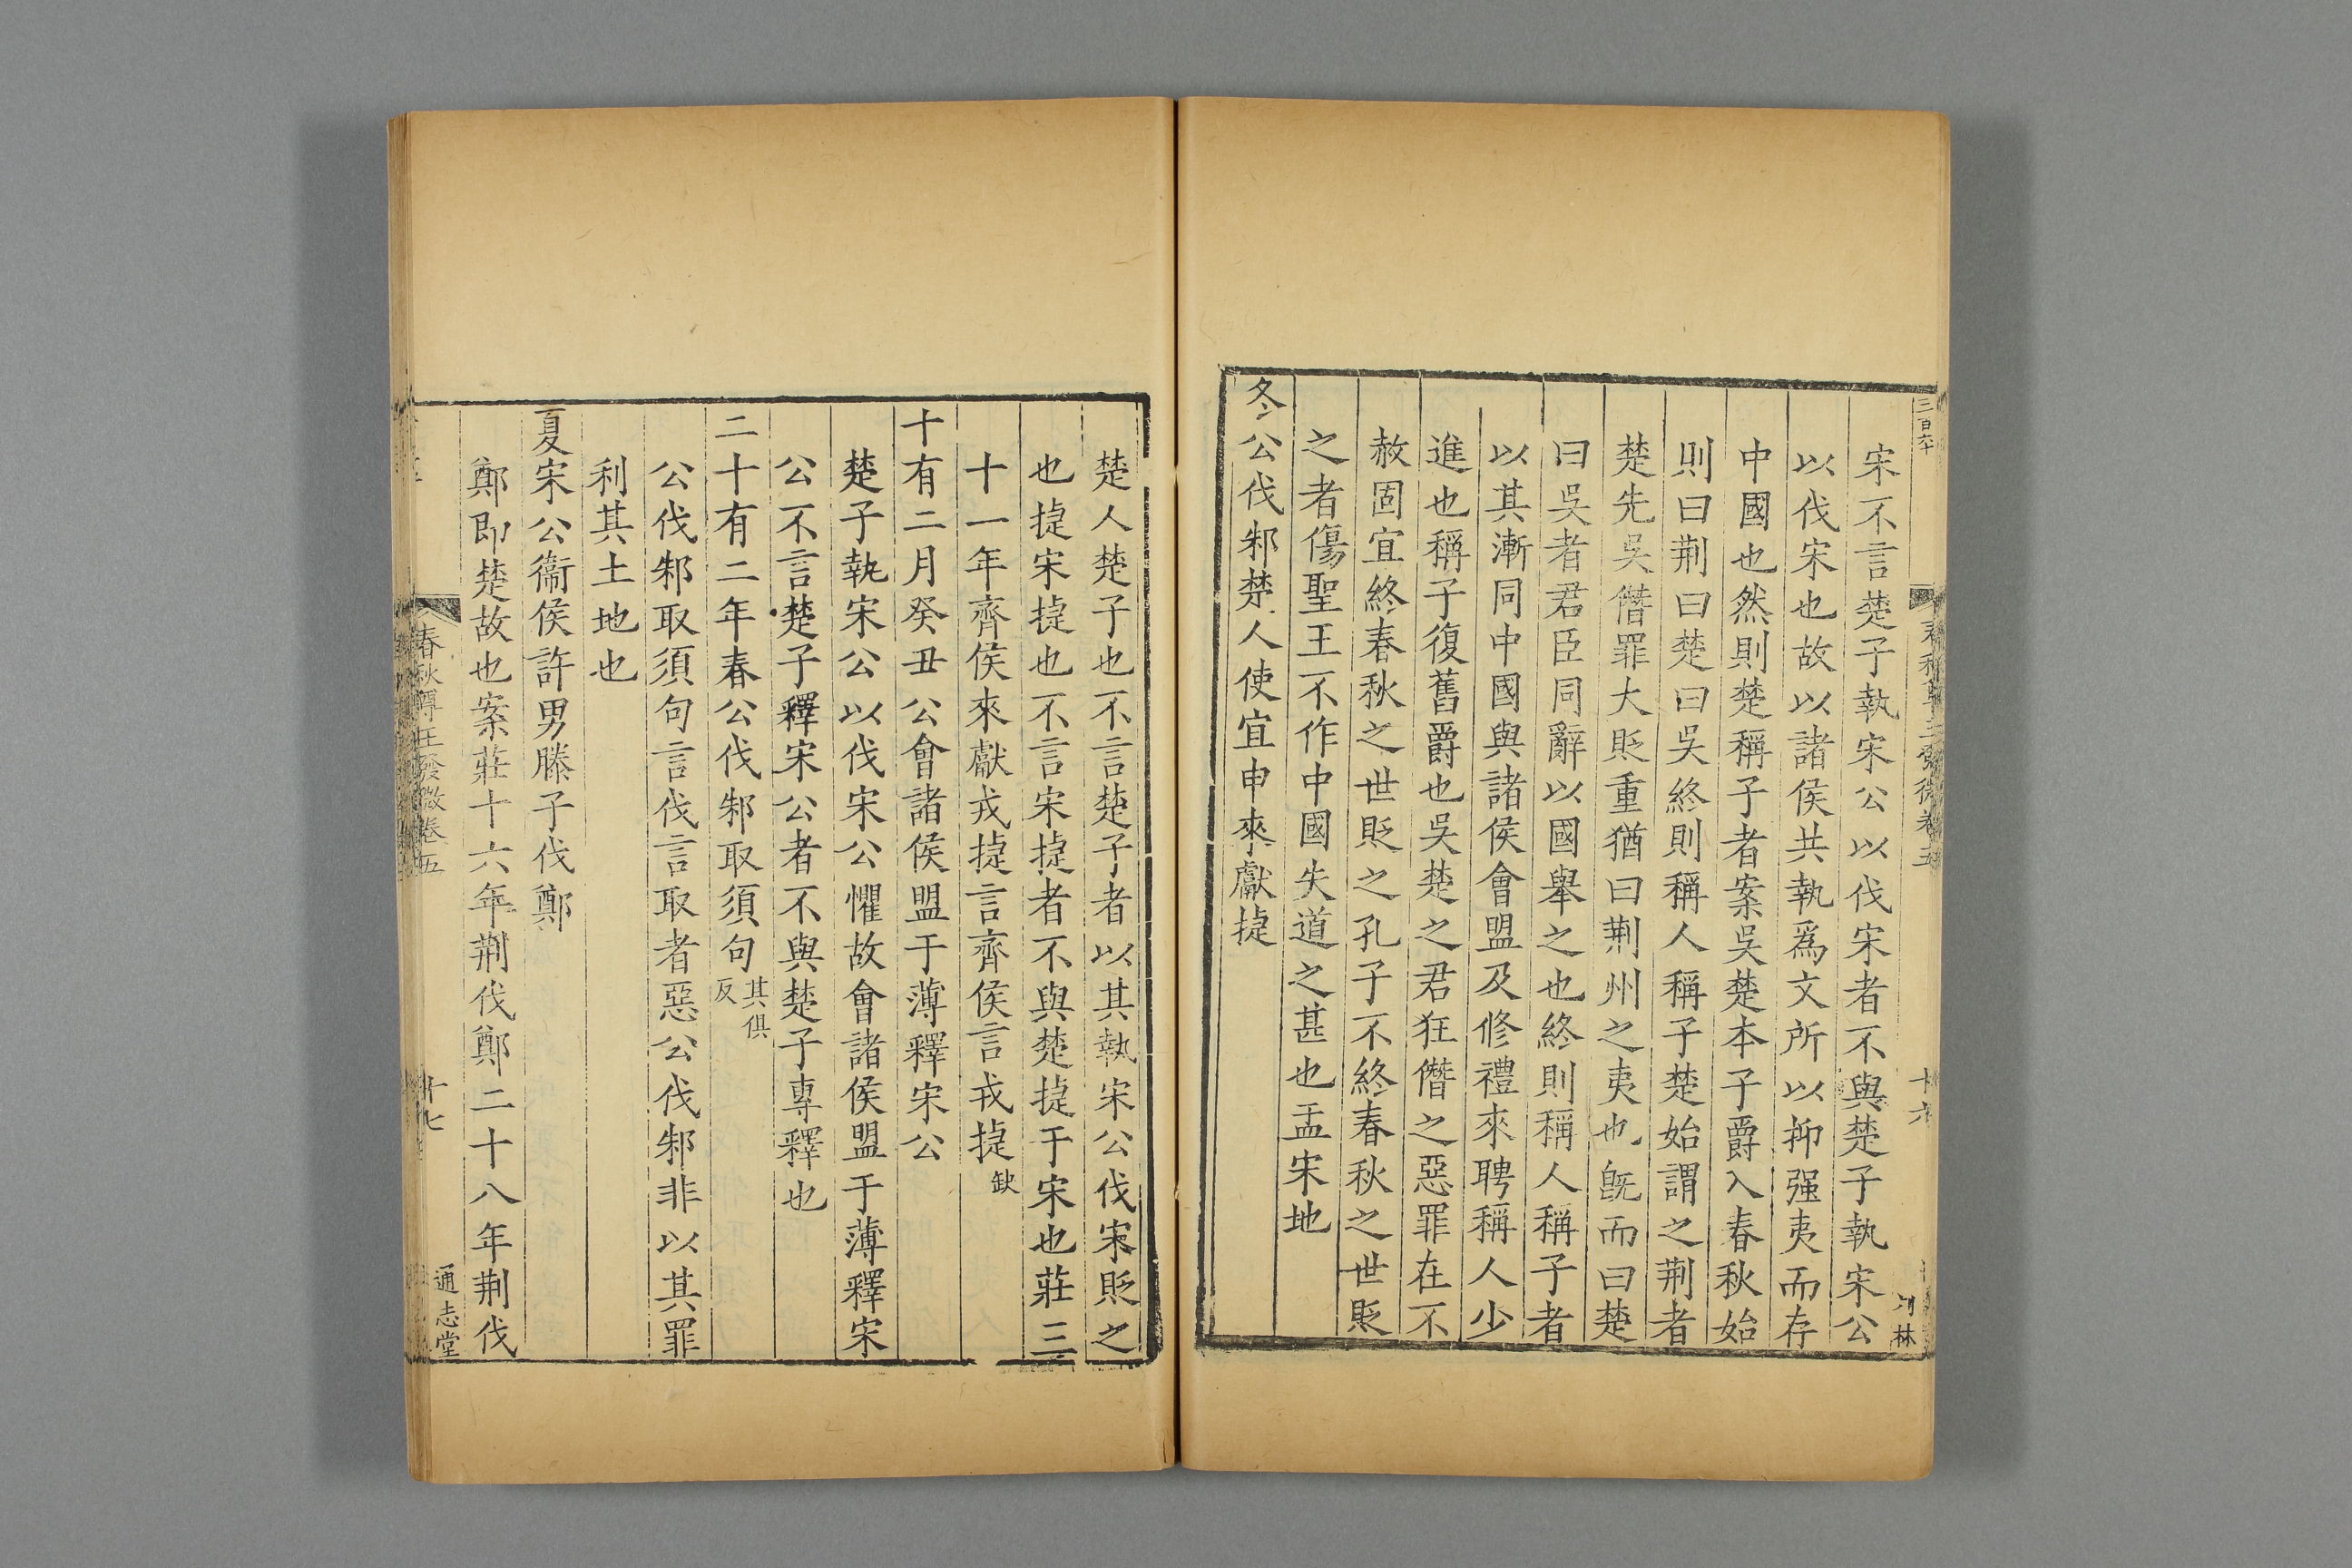 三百六十
春秋尊王發微卷五
十六
林
宋不言楚子執宋公以伐宋者不與楚子執宋公
以伐宋也故以諸侯共執爲文所以抑强夷而存
中國也然則楚稱子者案吳楚本子爵入春秋始
則曰荆曰楚曰吳終則稱人稱子楚始謂之荆者
楚先吳僭罪大貶重猶曰荆州之夷也旣而曰楚
曰吳者君臣同辭以國舉之也終則稱人稱子者
以其漸同中國與諸侯會盟及修禮來聘稱人少
進也稱子復舊爵也吳楚之君狂僭之惡罪在不
赦固宜終春秋之世貶之孔子不終春秋之世貶
之者傷聖王不作中國失道之甚也盂宋地
冬公伐邾楚人使宜申來獻捷
楚人楚子也不言楚子者以其執宋公伐宋貶之
也捷宋捷也不言宋捷者不與楚捷于宋也莊三
十一年齊侯來獻戎捷言齊侯言戎捷缺
十有二月癸丑公會諸侯盟于薄釋宋公
楚子執宋公以伐宋公懼故會諸侯盟于薄釋宋
公不言楚子釋宋公者不與楚子專釋也
二十有二年春公伐邾取須句其俱反
公伐邾取須句言伐言取者惡公伐邾非以其罪
利其土地也
夏宋公衞侯許男滕子伐鄭
鄭即楚故也案莊十六年荆伐鄭二十八年荆伐
春秋尊王發微卷五
十七
通志堂